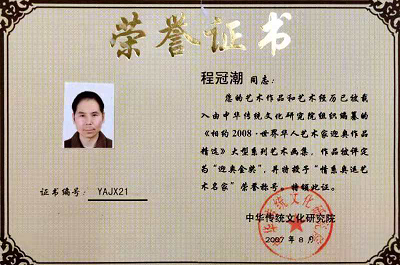 荣誉证书
程冠潮 同志：
您的艺术作品和艺术经历已被载
入由中华传统文化研究院组织编纂的
《相约2008·世界华人艺术家迎奥作品
精选》大型系列艺术画集，作品被评定
为“迎奥金奖”，并特授于“情系奥运艺
术名家”荣誉称号。特颁此证。
证书编号： YAJX21
中华传统文化研究院
2007年8月
中华传统文化研究院